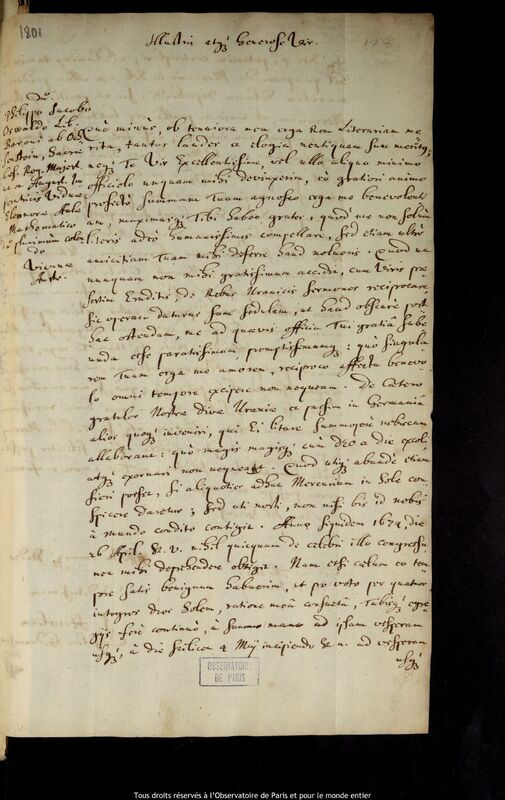 1801
Illustris atque Generose Vir.
Dn.
Philippo Jacobo
Oswaldo Lib.
Baroni ab
Sacrae
Caes. Reg. Majest.
Viduae
Eleonorae Aulae
Mathematico
Dn. plurimum colen
do
Viennae
Austr.
Quò minùs, ob tenuiora mea erga Rem Literariam me
rita, tantas laudes ac elogia mentiquam sum meritus;
neque Te Vir Excellentissime, vel ullo aliquo minimo
officiolo unquam mihi devinxerim, eò gratiori animo
profectò summam Tuam agnosco erga me benevolenti
am, maximasque Tibi habeo grates, quod me non solùm
literis adeò humanissimis compellare, sed etiam ultrò
amicitiam Tuam mihi deferre haud nolueris. Quod ut
nunquam non mihi gratissimum accidit, cum Viris prae
sertim Eruditis, de Rebus Uranicis sermones reciprocare,
sic operam daturus sum sedulam, ut haud obscurè post
hac ostendam, me ad quaevis officia Tui gratiâ sube
unda esse paratissimum promptissimumque: quò singula
rem Tuum erga me amorem, reciproco affectu benevo
lo omni tempore excipere non nequeam. De caetero
gratulor Nostrae Divae Uraniae ac passim in Germaniâ
alios quoque inveniri, qui Ei litare summopere nobiscum
allaborant: quò magis magisque cum DEO de die excoli
atque exornari non nequeat. Quod utique abundè etiam
fieri posset, si aliquoties adhuc Mercurium in Sole con
spicere daretur; sed uti nosti, non nisi bis id nobis
à mundo condito contigit. Anno siquidem 1674, die
26 April. St. v. nihil quicquam de celebri illo congressu
nec mihi deprehendere obtigit. Nam etsi caelum eo tem
pore satis benignum habuerim, ut pro voto per quatuor
integros dies Solem, ratione meâ consuetâ, Tubisque egre
giis ferè continuò, à summo mane ad ipsam vesperam
usque, à die scilicet 4 Maij incipiendo st. n. ad vesperam
usque
OBSERVATOIRE
DE PARIS
Tous droits réservés à l'Observatoire de Paris et pour le monde entier